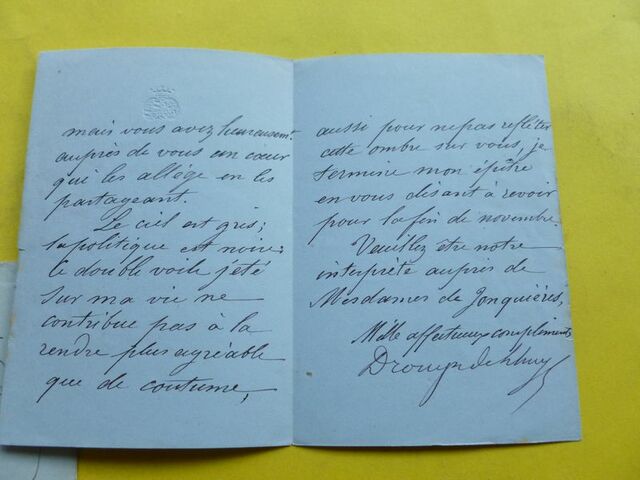 mais vous avez heureusemt.
auprès de vous un cœur
qui les allège en les
partageant.
Le ciel est gris;
la politique est noire:
le double voile jeté
sur ma vie ne
contribue pas à la
rendre plus agréable
que de coutume,
aussi pour ne pas refléter
cette ombre sur vous, je
termine mon épître
en vous disant à revoir
pour la fin de novembre.
Veuillez être notre
interprète auprès de
Mesdames de Jonquières,
Mille affectueux compliments
Drouyn de Lhuys